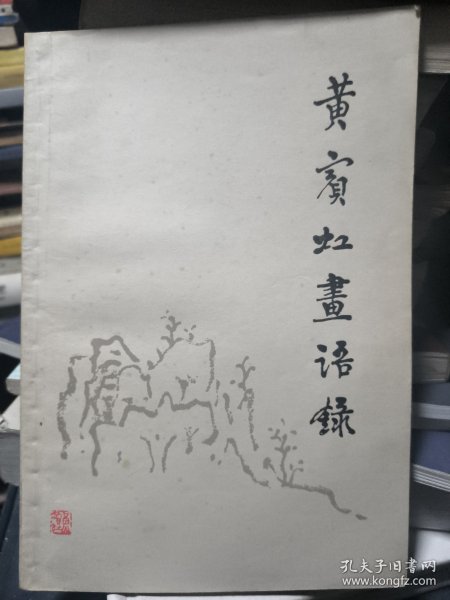 黄賓虹畫語錄
孔夫子旧书网
www.kongfz.com